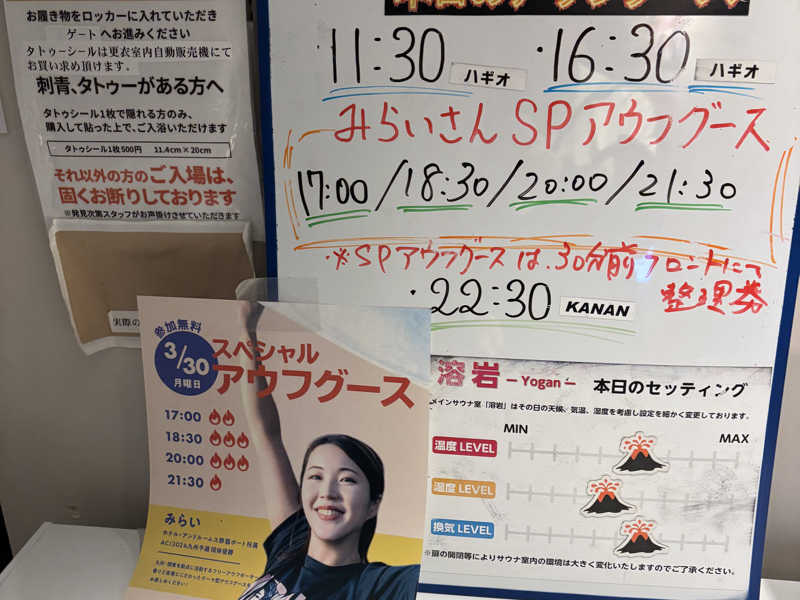 お履き物をロッカーに入れていただき
ゲート へお進みください
タトゥーシールは更衣室内自動販売機にて
お買い求め頂けます。
刺青、タトゥーがある方へ
タトゥシール1枚で隠れる方のみ、
購入して貼った上で、ご入浴いただけます
タトゥシール1枚500円 11.4cm×20cm
それ以外の方のご入場は、
固くお断りしております
※発見次第スタッフがお声掛けさせていただきます
実際の
11:30 ハギオ ・16:30 ハギオ
みらいさん SPアウフグース
17:00/18:30/20:00/21:30
・※SPアウフグースは、30分前フロントにて
整理券
・22:30 KANAN
参加無料
3/30
月曜日
スペシャル
アウフグース
17:00
18:30
20:00
21:30
みらい
溶岩 –Yogan– 本日のセッティング
メインサウナ室「溶岩」はその日の天候、気温、湿度を考慮し設定を細かく変更しております。
MIN MAX
温度 LEVEL
湿度 LEVEL
換気 LEVEL
※扉の開閉等によりサウナ室内の環境は大きく変化いたしますのでご了承ください。